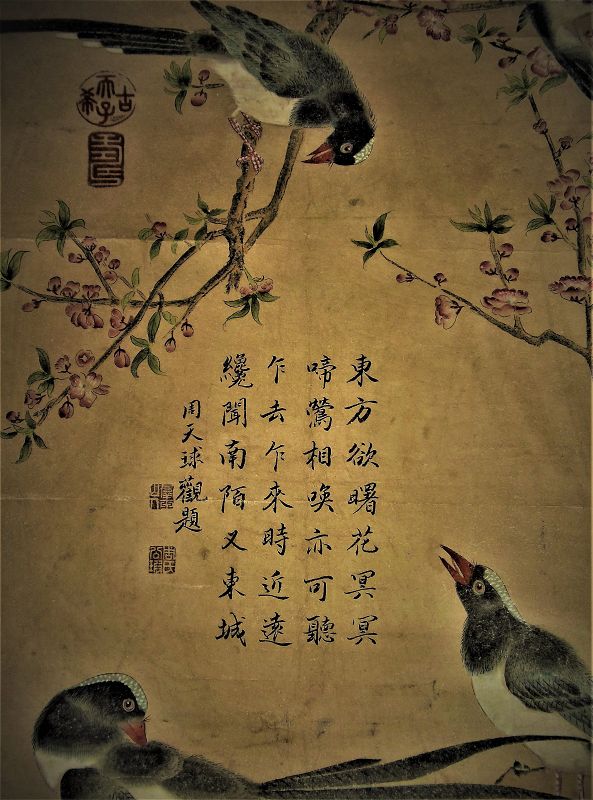 古希天子
東方欲曙花冥冥
啼鶯相喚亦可聽
乍去乍來時近遠
纔聞南陌又東城
周天球觀題
周氏公瑕